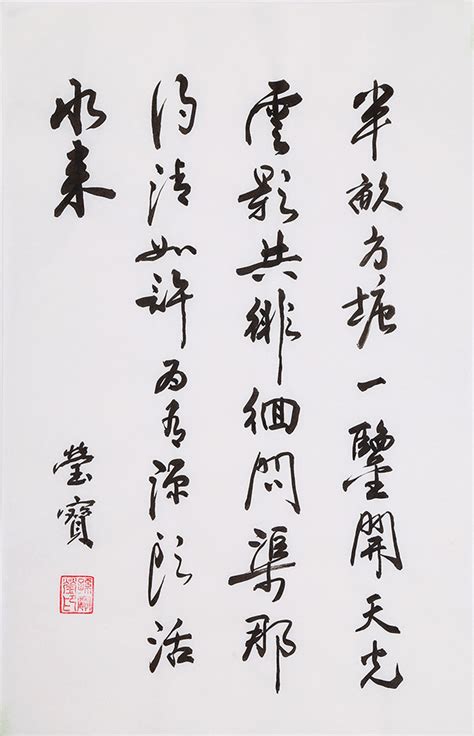 半畝方塘一鑒開天光
雲影共徘徊問渠那
得清如許為有源頭活
水来
瑩寶